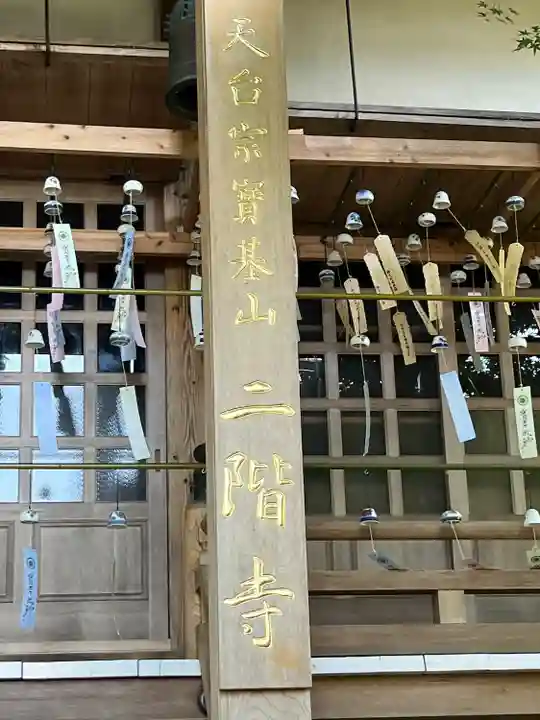 天台宗寳基山二階寺